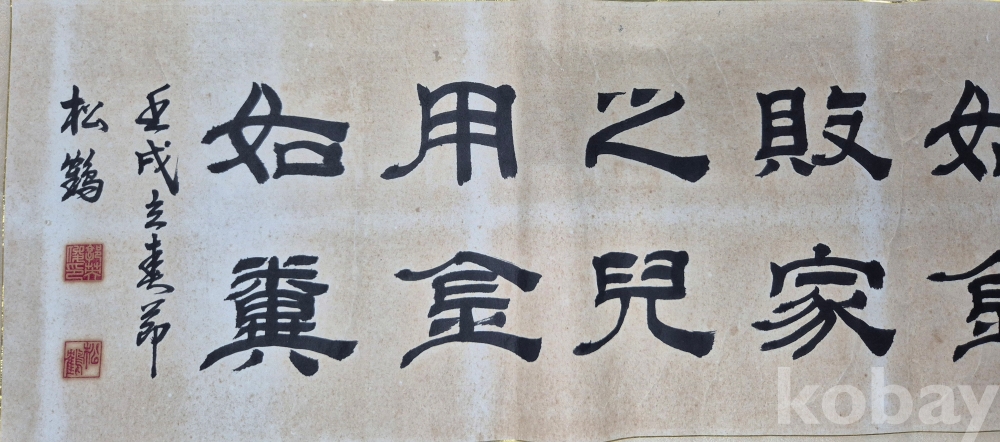 如金
敗家
之兒
用金
如糞
壬戌立春節
松鶴
松鶴
kobay